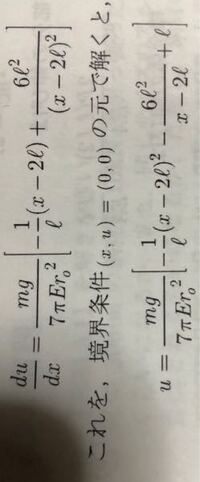 du/dx = mg/7πEr₀² [ -1/ℓ (x - 2ℓ) + 6ℓ²/(x - 2ℓ)² ]
これを，境界条件(x, u) = (0, 0) の元で解くと，
u = mg/7πEr₀² [ -1/ℓ (x - 2ℓ)² - 6ℓ²/x - 2ℓ + ℓ ]